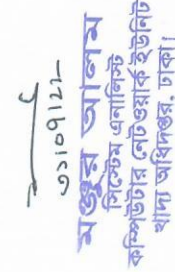 ৩১/০৭/২২
মঞ্জুর আলম
সিস্টেম এনালিস্ট
কম্পিউটার নেটওয়ার্ক ইউনিট
খাদ্য অধিদপ্তর, ঢাকা।